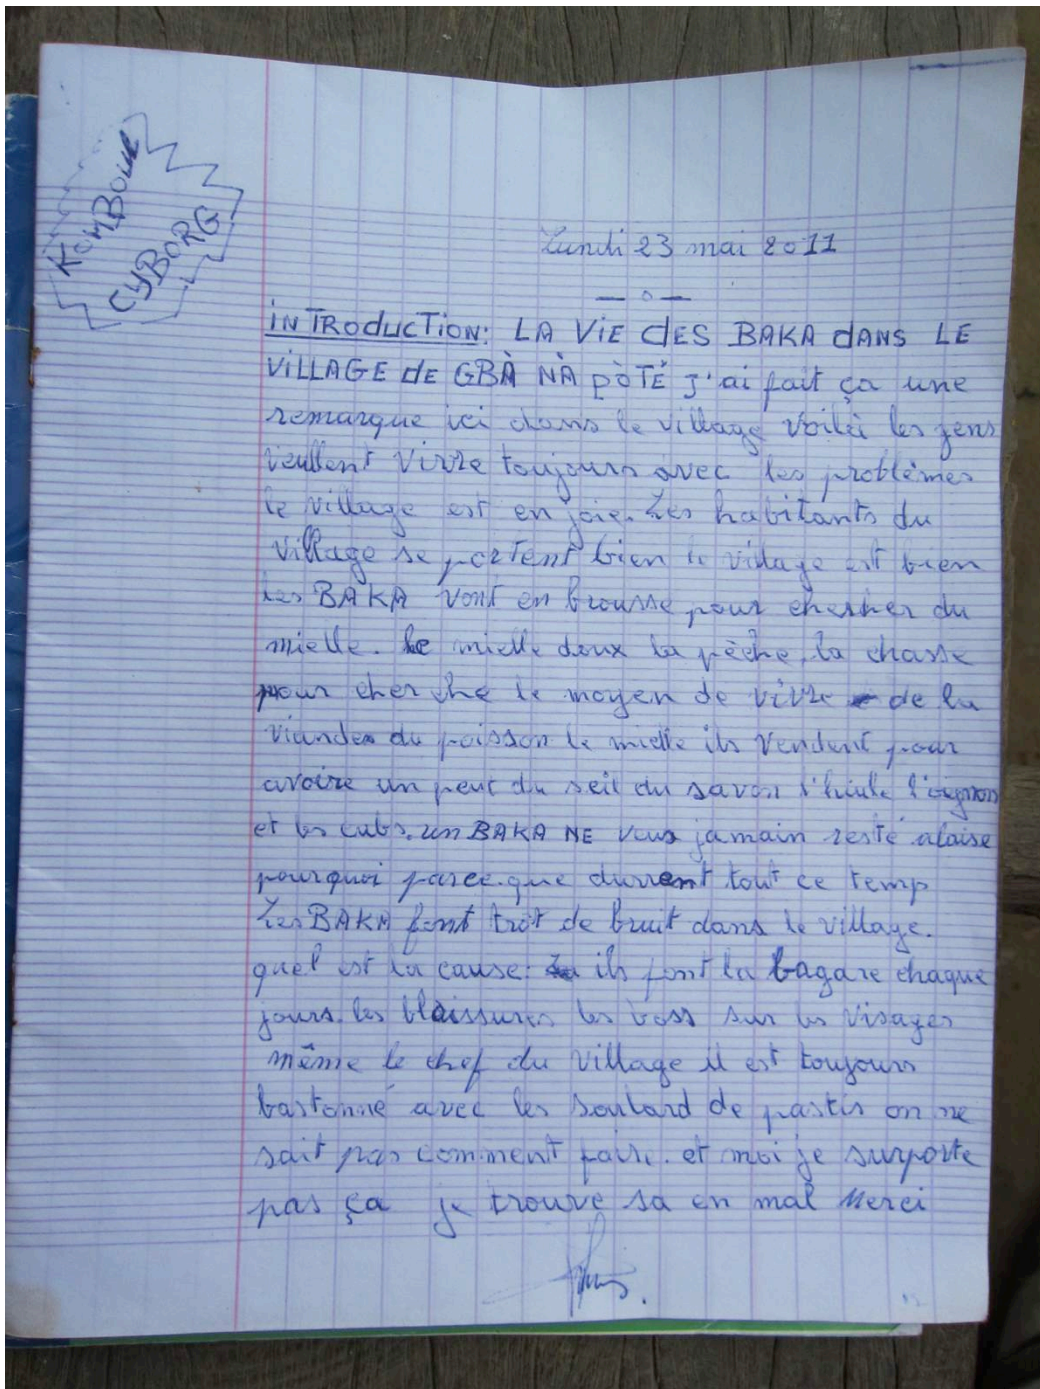 KOMBOUE
CYBORG
Lundi 23 mai 2011
— o —
iNTRODucTiON: LA ViE dES BAKA dANS LE
ViLLAGE dE GBÀ NÀ PÒTÉ J'ai fait ça une
remarque ici dans le village voilà les gens
veullent vivre toujours avec les problèmes
le village est en joie. Les habitants du
village se portent bien le village est bien
les BAKA vont en brousse pour chercher du
mielle. Le mielle doux la pêche, la chasse
pour cherché le moyen de vivre de la
viandes du poisson le mielle ils vendent pour
avoire un peut du seil du savon l'huile l'oignons
et les cubs. un BAKA NE veus jamain resté alaise
pourquoi parce.que durrent tout ce temp
Les BAKA font trot de bruit dans le village.
quel est la cause: ils font la bagare chaque
jours. les blaissures les boss sur les visages
même le chef du village il est toujours
bastonné avec les soulard de pastis on ne
sait pas comment faire. et moi je surporte
pas ça je trouve sa en mal Merci